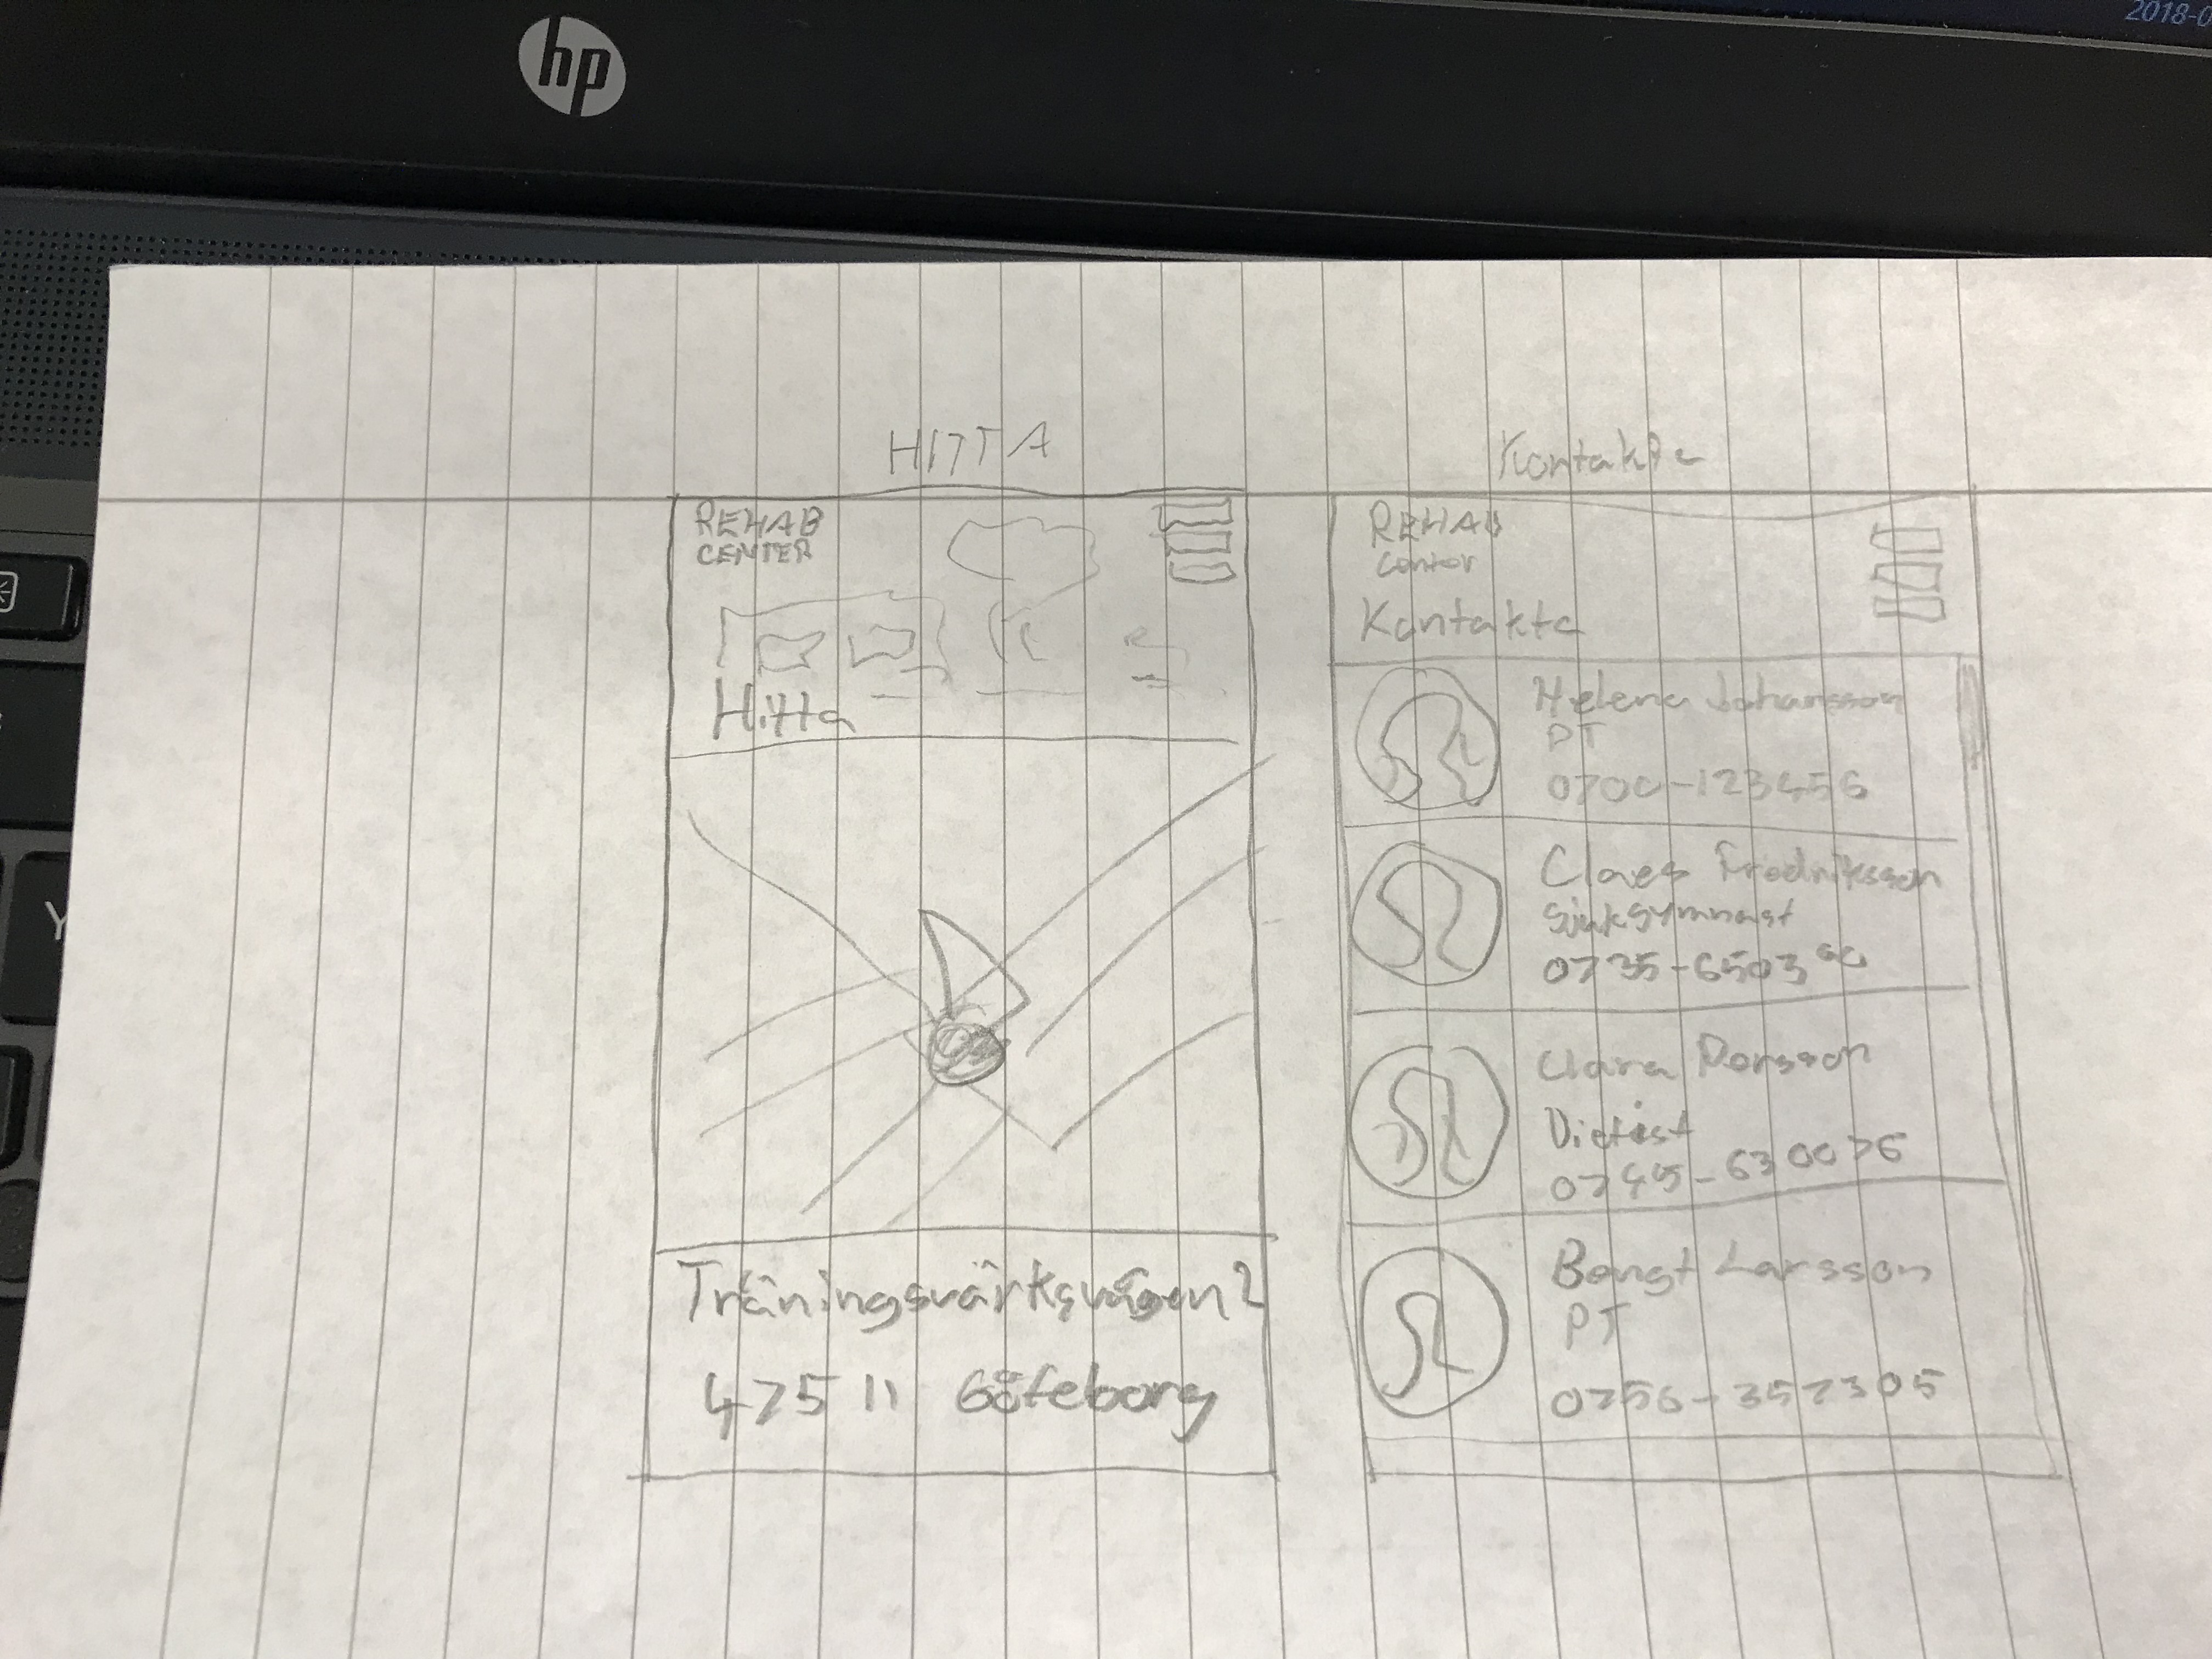 HITTA
REHAB
CENTER
Hitta
Träningsvärksvägen 2
475 11 Göteborg
Kontakta
REHAB
center
Kontakta
Helena
PT
0700-123456
Claes Fredriksson
Sjukgymnast
0735-650360
Clara Persson
Dietist
0745-630076
Bengt Larsson
PT
0756-3572305
hp
Y